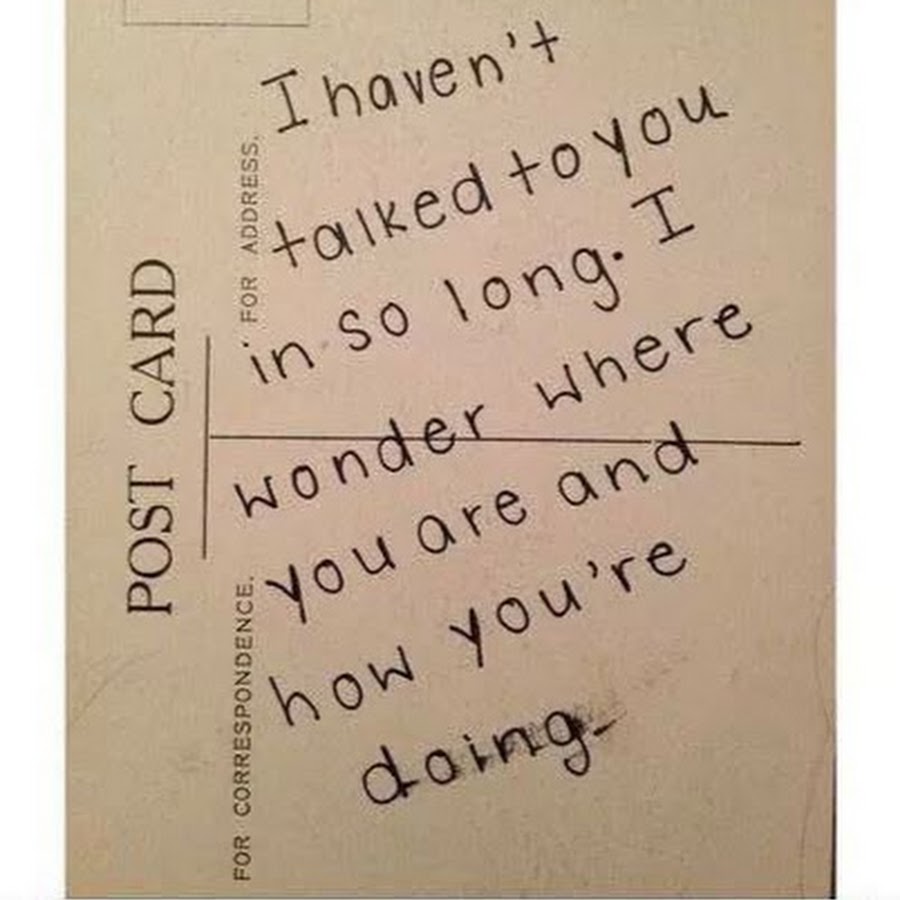 POST CARD
FOR ADDRESS.
FOR CORRESPONDENCE.
I haven't
talked to you
in so long. I
wonder where
you are and
how you're
doing.